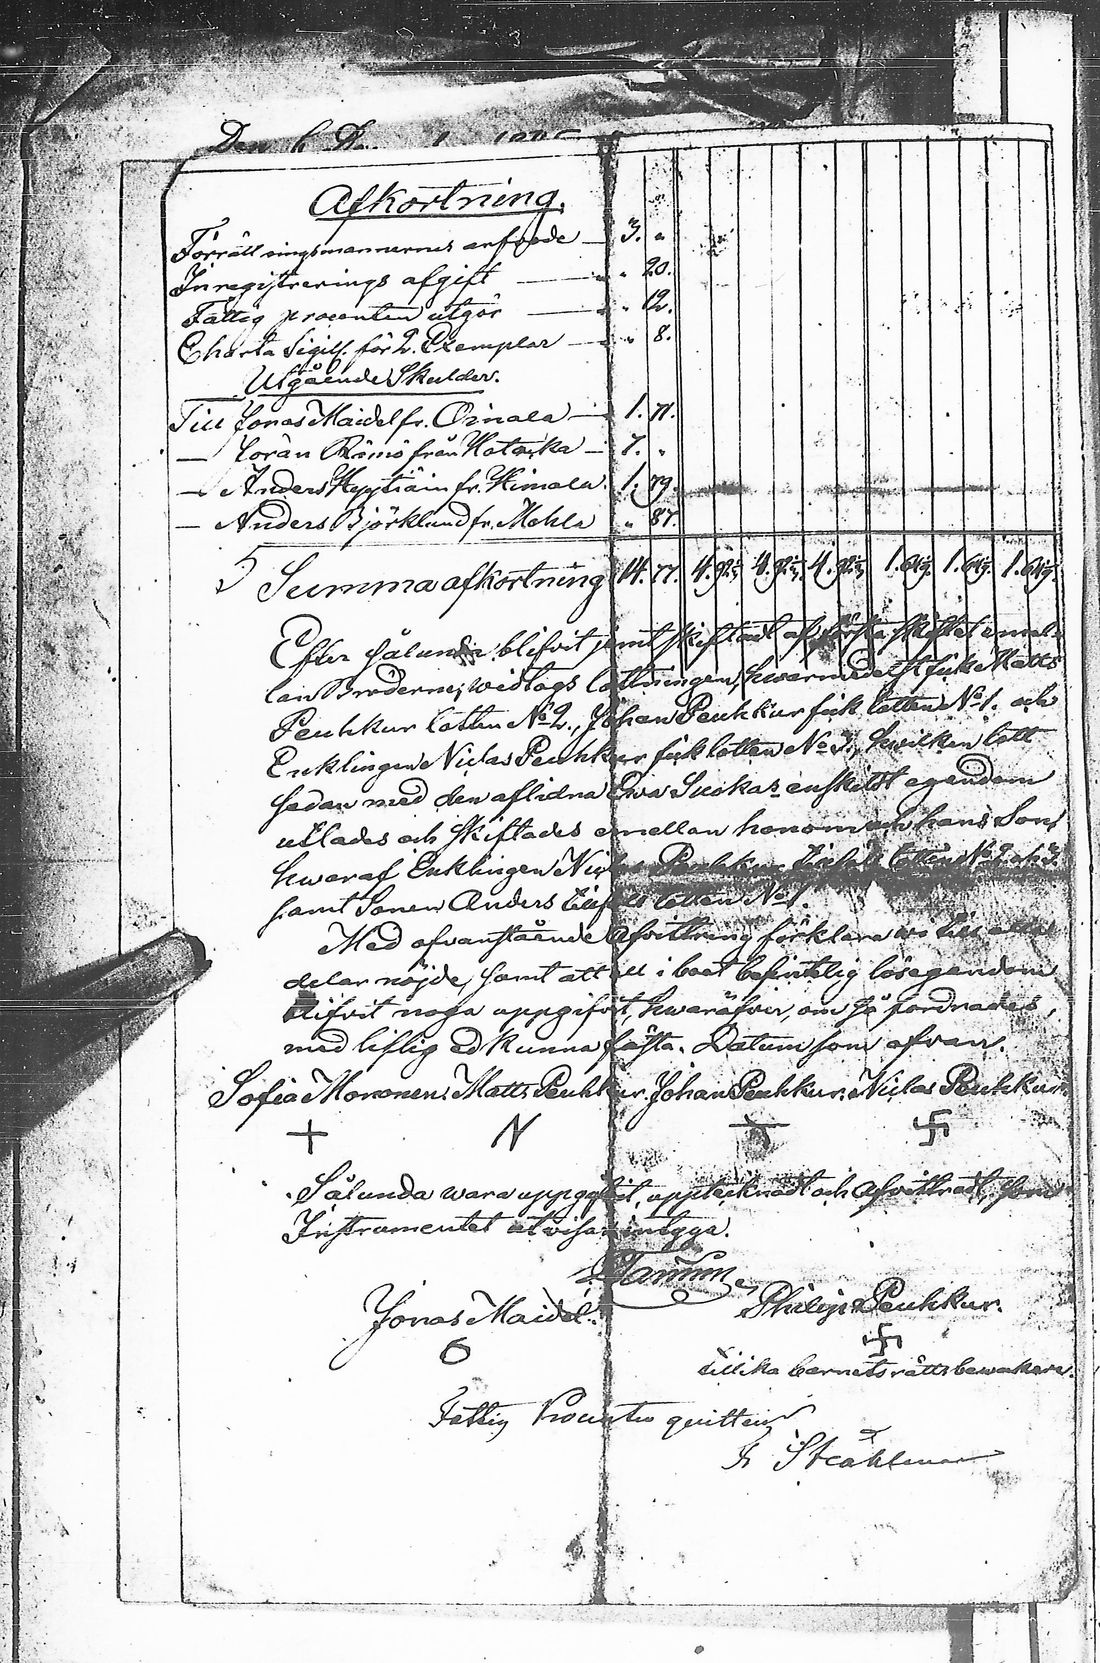 Afkortning.
Förrättningsmannernes arfvode — 3. „
Inregistrerings afgift — „ 20.
Fattig procenten utgör — „ 12.
Charta Sigill. för 2. Exemplar — „ 8.
Utgående Skulder.
Till Jonas Maidel fr. Oinala — 1. 71.
— Göran Römö från Hatakka — 7. „
— Anders Hyytiäin fr. Himala. 1. 79.
— Anders Björklund fr. Mohla „ 87.
Summa afkortning 14. 77.
Efter sålunda blifvit jemt skiftadt af första skiftet emel-
lan Bröderne, widtogs lottningen, hwarmedelst fick Matts
Peuhkur lotten No 2., Johan Peuhkur fick lotten No 1. och
Enklingen Niclas Peuhkur fick lotten No 3., hwilken lott
sedan med den aflidna Ewa Suokas enskildt egendom
utlades och skiftades emellan honom och hans Son,
hwaraf Enklingen Niclas Peuhkur tillföll lotten No 2. och 3.
samt Sonen Anders tillföll lotten No 1.
Med ofvanstående afvittring förklara wi till alla
delar nöjde, samt att all i boet befintelig lösegendom
blifvit noga uppgifvit, hwaröfver, om så fordrades,
med liflig ed kunna fästa. Datum som ofvan.
Sofia Mononen. Matts Peuhkur. Johan Peuhkur. Niclas Peuhkur.
Sålunda wara uppgifvit, upptecknadt och afvittradt, som
Instrumentet utvisar intyga.
Jonas Maidel. Philip Peuhkur.
tillika barnets rättsbewakare.
Fattig Procenten quitteras
Stråhlman